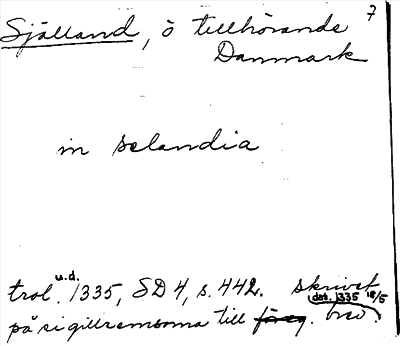 7
Själland, ö tillhörande
Danmark
in selandia
u.d.
trol. 1335, SD 4, s. 442. skrivet
på sigillremsorna till föreg. brev.
dat. 1335 18/5